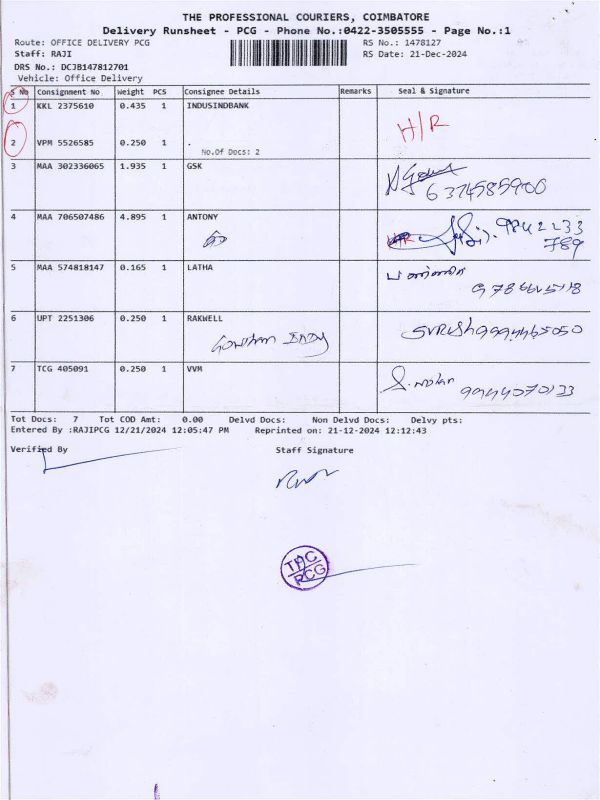 THE PROFESSIONAL COURIERS, COIMBATORE
Delivery Runsheet - PCG - Phone No.:0422-3505555 - Page No.:1
Route: OFFICE DELIVERY PCG RS No.: 1478127
Staff: RAJI RS Date: 21-Dec-2024
DRS No.: DCJB147812701
Vehicle: Office Delivery
S No Consignment No Weight PCS Consignee Details Remarks Seal & Signature
1 KKL 2375610 0.435 1 INDUSINDBANK
H/R
2 VPM 5526585 0.250 1 .
No.Of Docs: 2
3 MAA 302336065 1.935 1 GSK
6374585900
4 MAA 706507486 4.895 1 ANTONY
H/R 9842233
789
5 MAA 574818147 0.165 1 LATHA
6 UPT 2251306 0.250 1 RAKWELL
7 TCG 405091 0.250 1 VVM
9944070133
Tot Docs: 7 Tot COD Amt: 0.00 Delvd Docs: Non Delvd Docs: Delvy pts:
Entered By :RAJIPCG 12/21/2024 12:05:47 PM Reprinted on: 21-12-2024 12:12:43
Verified By Staff Signature
PCG